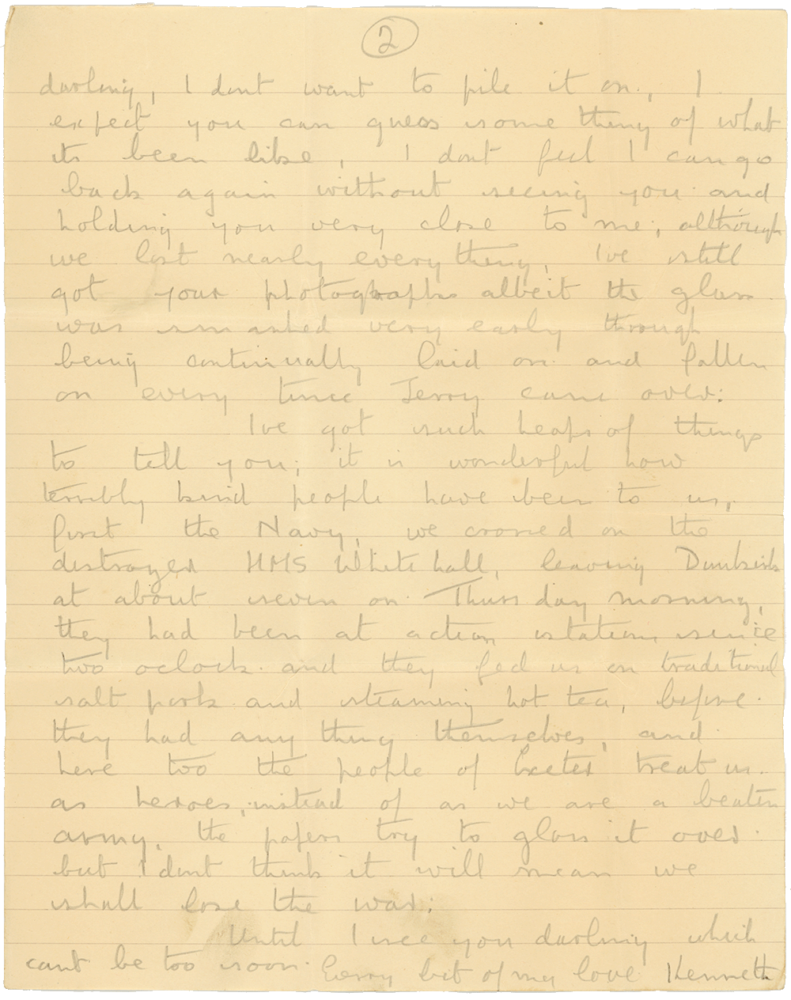 2
darling, I dont want to pile it on, I
expect you can guess some thing of what
its been like, I dont feel I can go
back again without seeing you and
holding you very close to me, although
we lost nearly everything, Ive still
got your photographs albeit the glass
was smashed very early through
being continually laid on and fallen
on every time Jerry came over:
Ive got such heaps of things
to tell you; it is wonderful how
terribly kind people have been to us,
first the Navy, we crossed on the
destroyer HMS Whitehall, leaving Dunkirk
at about seven on Thursday morning,
they had been at action stations since
two oclock and they fed us on traditional
salt pork and steaming hot tea, before
they had any thing themselves, and
here too the people of Exeter treat us
as heroes, instead of as we are a beaten
army, the papers try to gloss it over
but I dont think it will mean we
shall lose the war:
Until I see you darling which
cant be too soon. Every bit of my love Kenneth